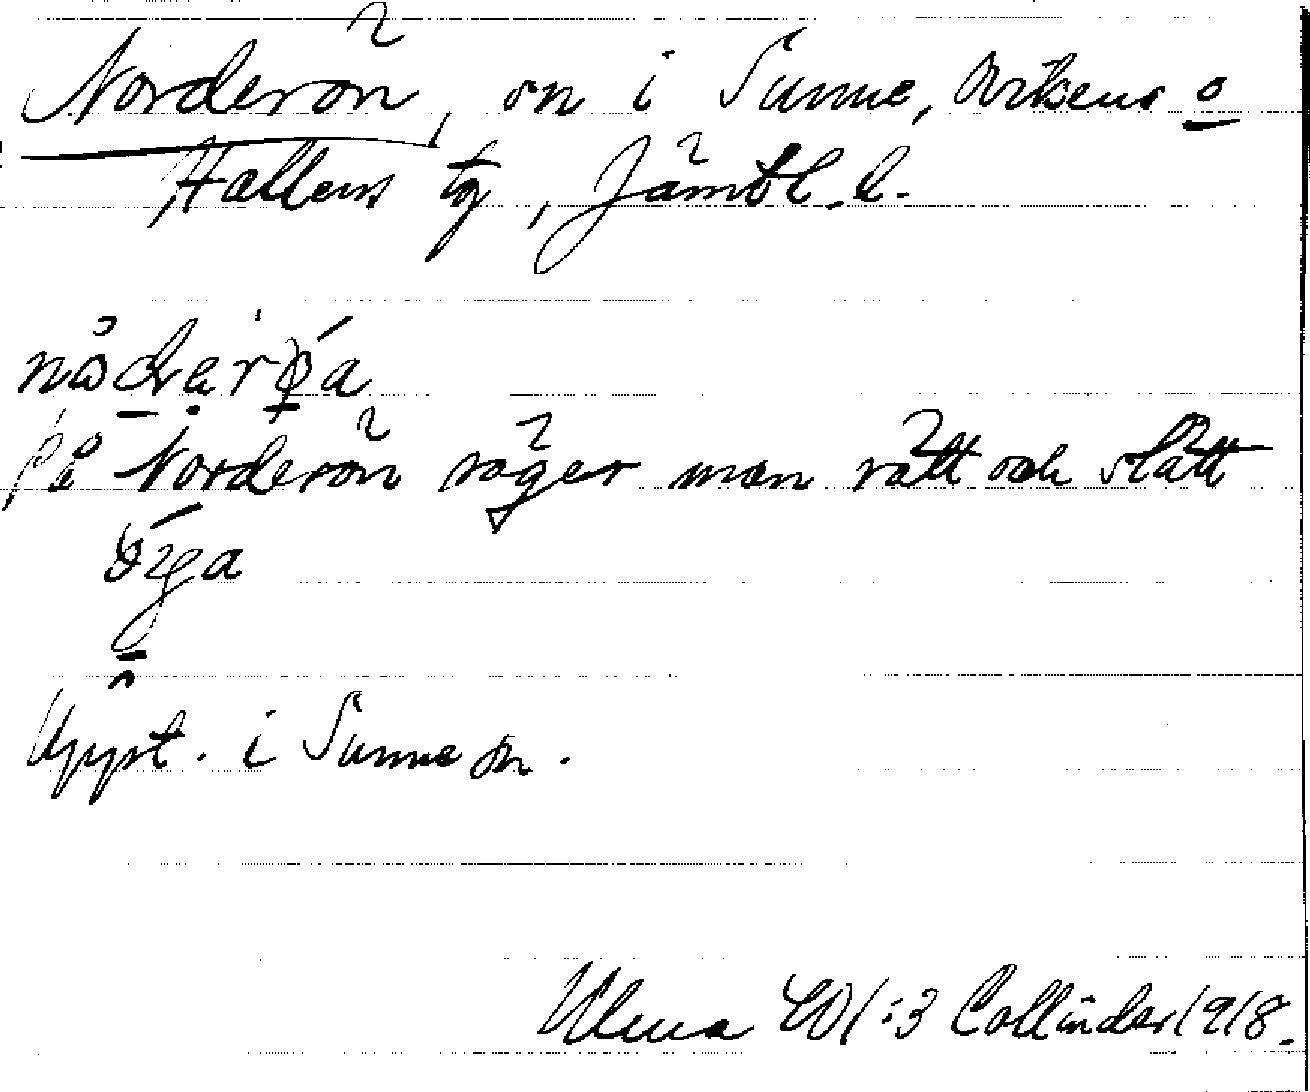 Norderön, sn i Sunne, Ovikens o
Hallens tg, Jämtl. l.
På Norderön säger man rätt och slätt
Uppt. i Sunne sn.
Ulma 401:3 Collinder 1918.